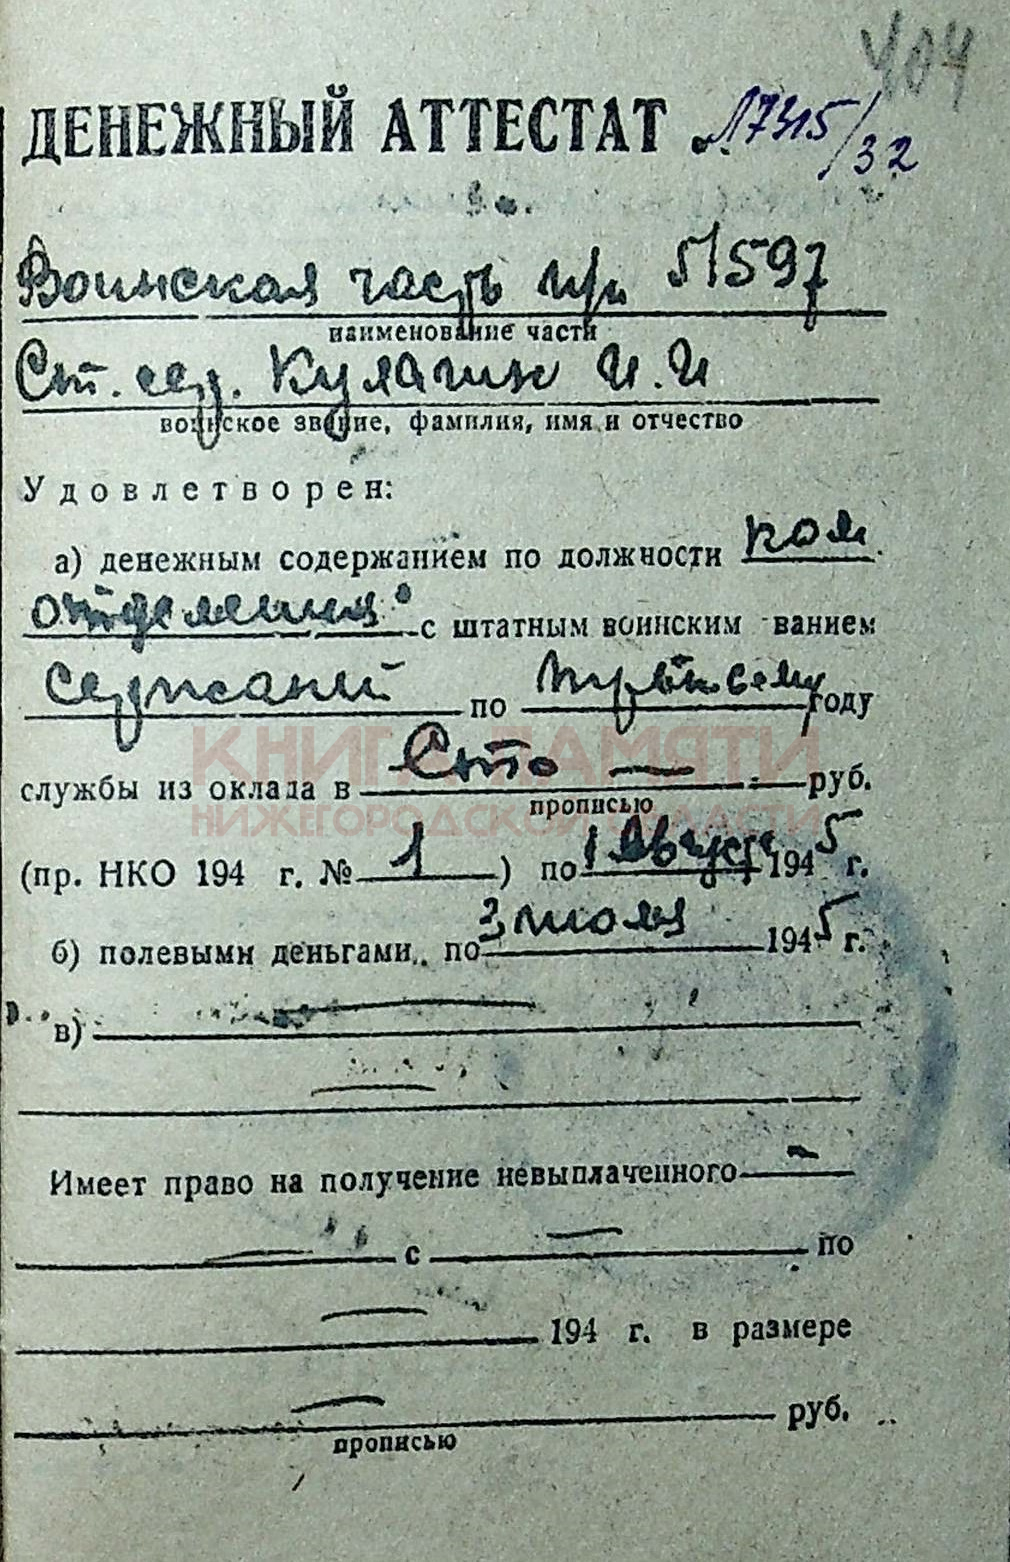 404
ДЕНЕЖНЫЙ АТТЕСТАТ №7315/32
Воинская часть п/п 51597
наименование части
Ст. сер. Кулагин И. И
воинское звание, фамилия, имя и отчество
Удовлетворен:
а) денежным содержанием по должности ком.
отделения с штатным воинским званием
сержант по году
службы из оклада в Сто — руб.
прописью
КНИГА ПАМЯТИ
НИЖЕГОРОДСКОЙ ОБЛАСТИ
(пр. НКО 194 г. № 1) по 1 Август 1945 г.
б) полевыми деньгами по 1945 г.
в) —
Имеет право на получение невыплаченного —
— с — по
— 194 г. в размере
— руб.
прописью